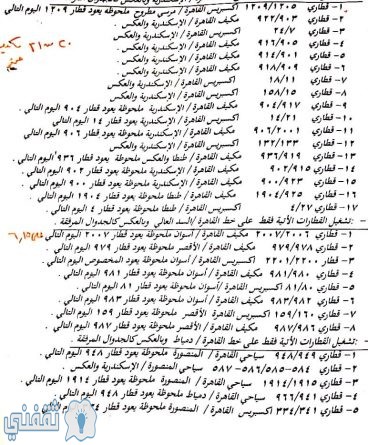 ١- قطاري ١٢٠٩/١٢٠٥ اكسبريس القاهرة / مرسي مطروح ملحوظة يعود قطار ١٢٠٩ اليوم التالي
٢- قطاري ٩٢٢/٩٠٣ مكيف القاهرة / الإسكندرية والعكس .
٣- قطاري ٢٤/٧ اكسبريس القاهرة / الإسكندرية والعكس
٤- قطاري ٩١٦/٩٠٥ مكيف القاهرة / الإسكندرية والعكس .
٥- قطاري ٩١٤/٩٠١ مكيف القاهرة / الإسكندرية والعكس .
٦- قطاري ٩١٨/٩٠٩ مكيف القاهرة / الإسكندرية والعكس .
٧- قطاري ١٨/١١ اكسبريس القاهرة / الإسكندرية والعكس
٨- قطاري ١٥٨/١٥ اكسبريس القاهرة / الإسكندرية والعكس .
٩- قطاري ٩٠٤/٩١٧ مكيف القاهرة / الإسكندرية ملحوظة يعود قطار ٩٠٤ اليوم التالي .
١٠- قطاري ١٤/٢١ اكسبريس القاهرة / الإسكندرية ملحوظة يعود قطار ١٤ اليوم التالي
١١- قطاري ٩٠٦/٢٠٠١ مكيف القاهرة / الإسكندرية ملحوظة يعود قطار ٩٠٦ اليوم التالي .
١٢- قطاري ١٣٢/١٣٣ اكسبريس القاهرة / الإسكندرية والعكس
١٣- قطاري ٩٣٦/٩١٩ مكيف القاهرة / طنطا والعكس ملحوظة يعود قطار ٩٣٦ اليوم التالي .
١٤- قطاري ٩٠٢/٩١٥ مكيف القاهرة / الإسكندرية ملحوظة يعود قطار ٩٠٢ اليوم التالي .
١٥- قطاري ٩٠٠/٩٢٣ مكيف القاهرة / الإسكندرية ملحوظة يعود قطار ٩٠٠ اليوم التالي .
١٦- قطاري ١٩٠٤/٩٢٥ مكيف القاهرة / الإسكندرية ملحوظة يعود قطار ١٩٠٤ اليوم التالي
١٧- قطاري ٤/٢٧ اكسبريس القاهرة / طنطا ملحوظة يعود قطار ٤ اليوم التالي .
- تشغيل القطارات الآتية فقط على خط القاهرة / السد العالي وبالعكس كالجداول المرفقة .
١- قطاري ٢٠٠٧/٢٠٠٦ مكيف القاهرة / أسوان ملحوظة يعود قطار ٢٠٠٧ اليوم التالي
٢- قطاري ٩٧٩/٩٧٨ مكيف القاهرة / الأقصر ملحوظة يعود قطار ٩٧٩ اليوم التالي
٣- قطاري ٢٢٠١/٢٢٠٠ اكسبريس القاهرة / أسوان ملحوظة يعود المخصوص اليوم التالي .
٤- قطاري ٩٨١/٩٨٠ مكيف القاهرة / أسوان ملحوظة يعود قطار ٩٨١ اليوم التالي .
٥- قطاري ٨١/٨٠ اكسبريس القاهرة /أسوان ملحوظة يعود قطار ٨١ اليوم التالي .
٦- قطاري ٩٨٣/٩٨٢ مكيف القاهرة / أسوان ملحوظة يعود قطار ٩٨٣ اليوم التالي .
٧- قطاري ١٥٩/١٦٠ اكسبريس القاهرة / الأقصر ملحوظة يعود قطار ١٥٩ اليوم التالي
٨- قطاري ٩٨٧/٩٨٦ مكيف القاهرة / الأقصر ملحوظة يعود قطار ٩٨٧ اليوم التالي .
- تشغيل القطارات الآتية فقط على خط القاهرة / دمياط وبالعكس كالجداول المرفقة .
١- قطاري ٩٤٨/٩٤٩ سياحي القاهرة / المنصورة ملحوظة يعود قطار ٩٤٨ اليوم التالي .
٢- قطاري ٥٨٤-٥٨٥/٥٨٦-٥٨٧ سياحي المنصورة / الإسكندرية والعكس
٣- قطاري ١٩١٤/١٩١٥ سياحي القاهرة / المنصورة ملحوظة يعود قطار ١٩١٤ اليوم التالي .
٤- قطاري ٩٦٦/٩٤١ سياحي القاهرة / دمياط والعكس .
٥- قطاري ٣٣٤/٣٤١ اكسبريس القاهرة / المنصورة ملحوظة يعود قطار اليوم التالي
ثقفني